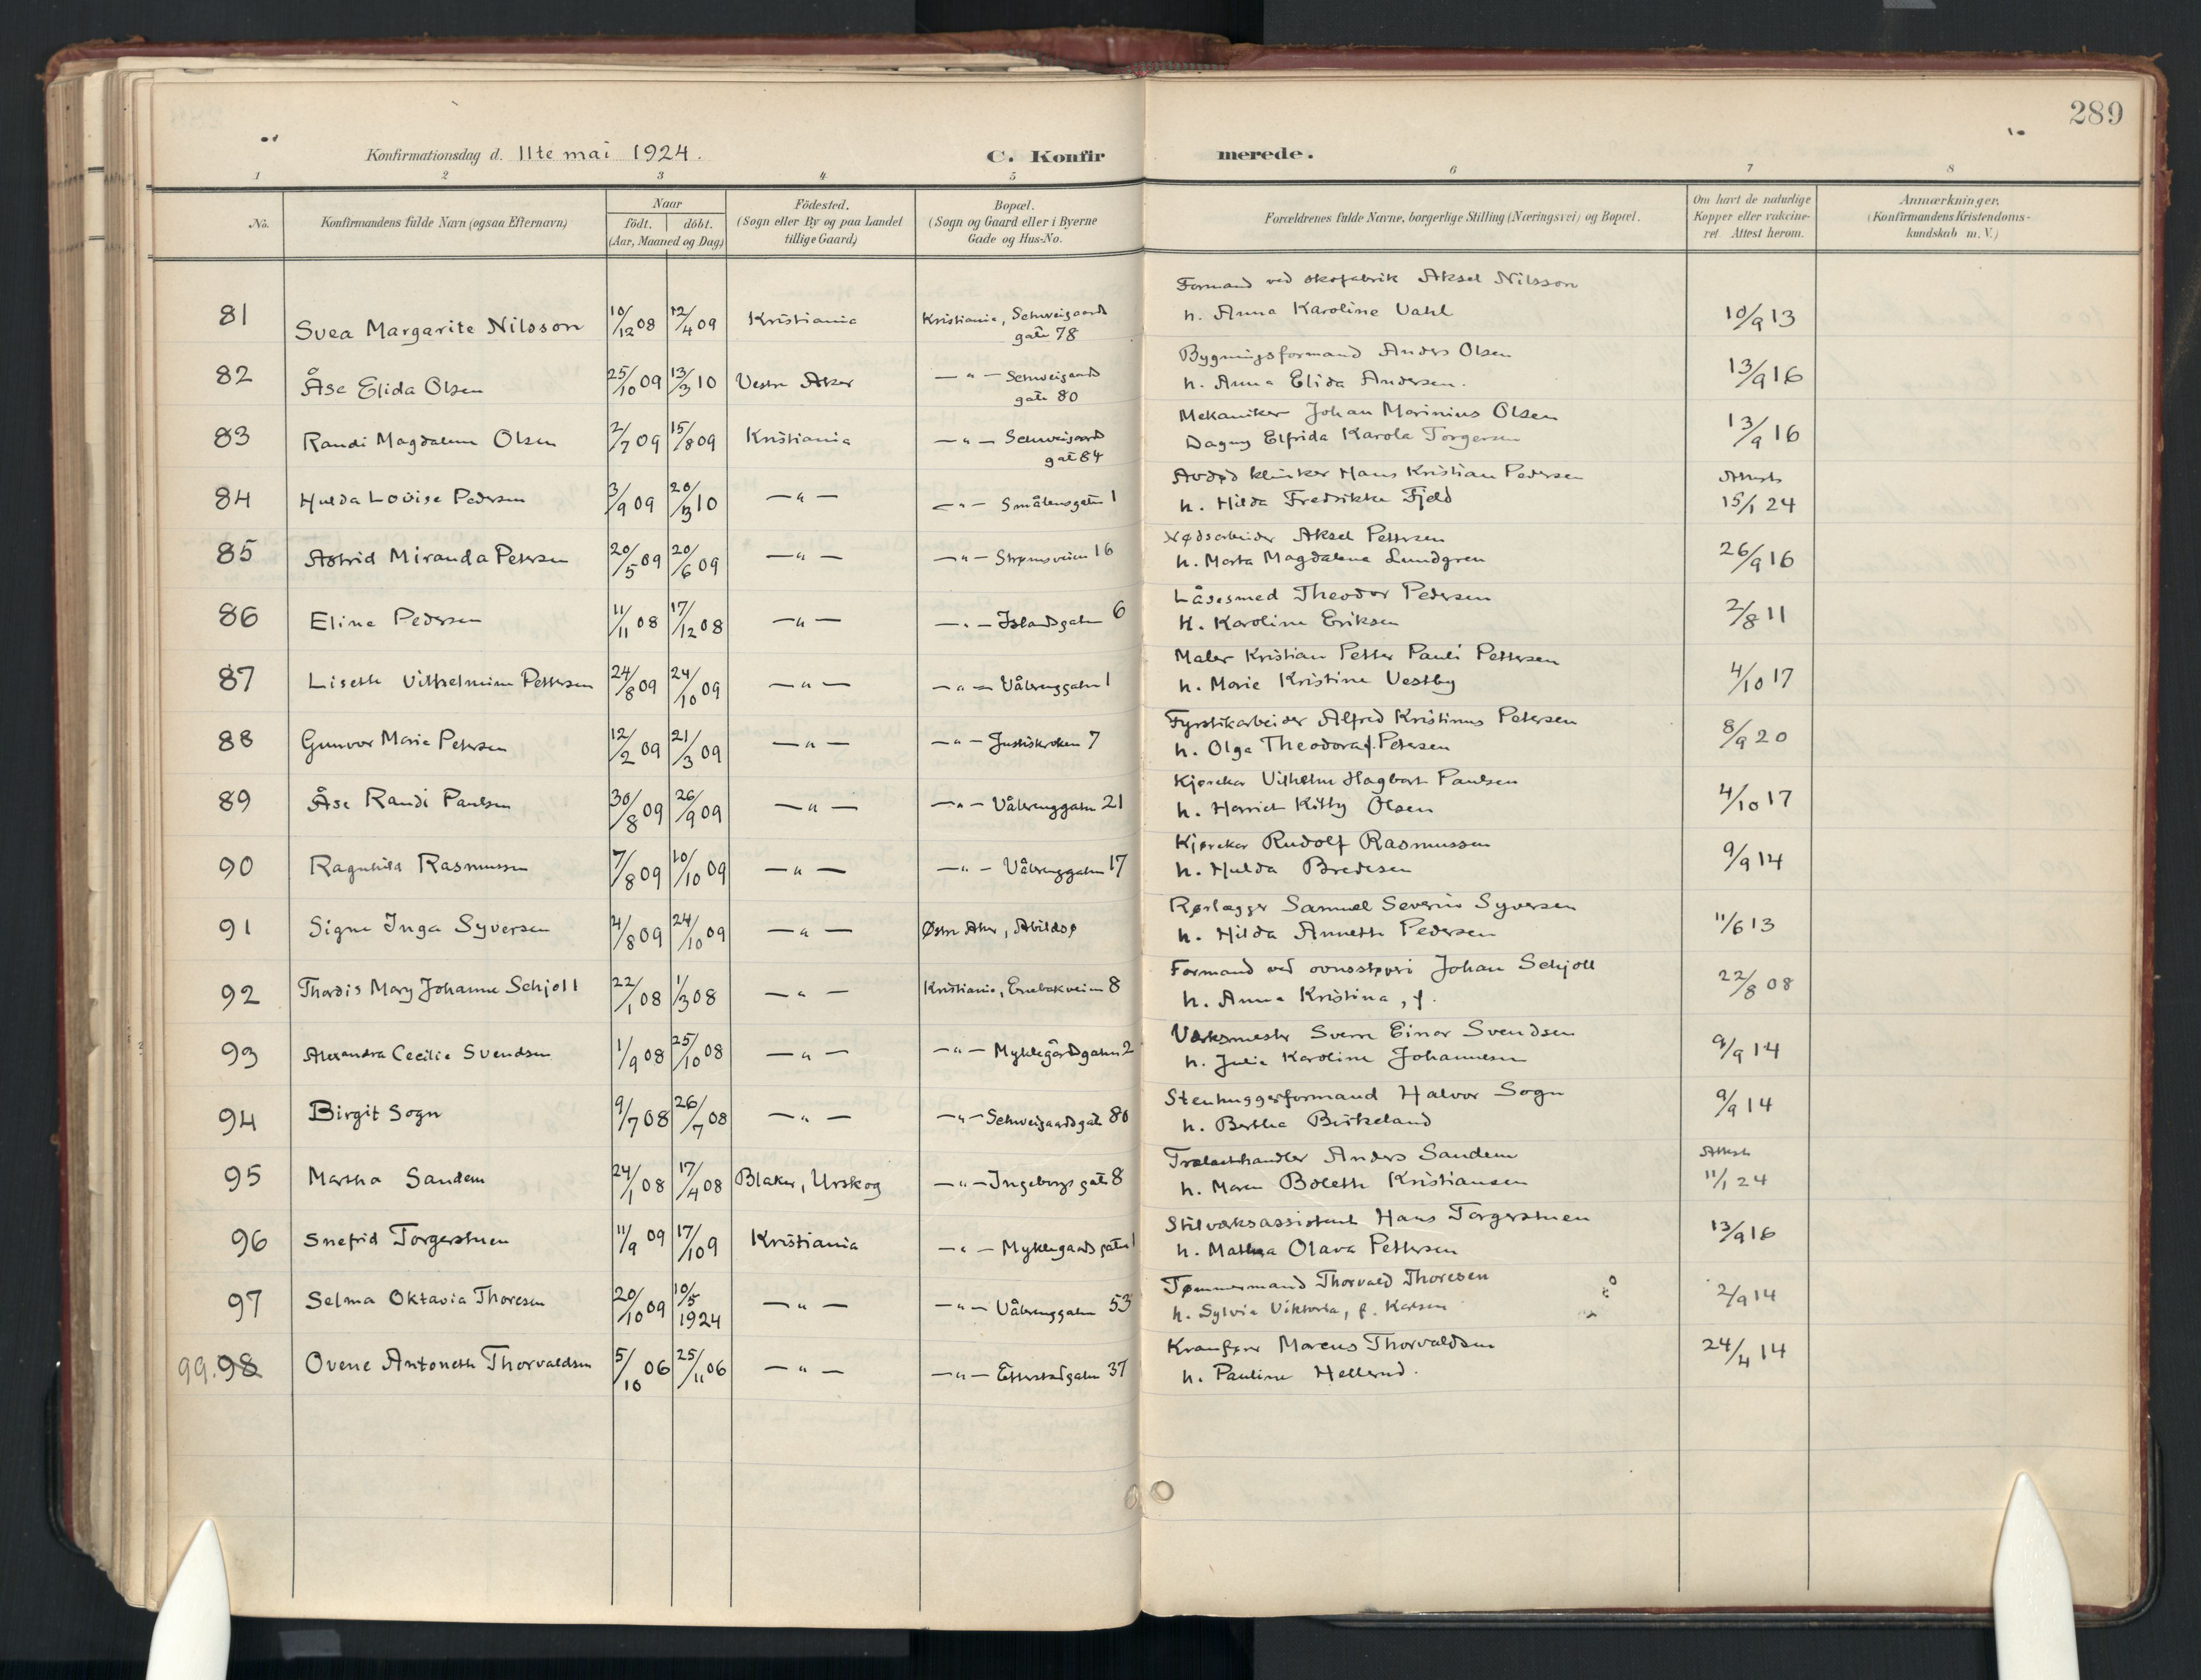 289
Konfirmationsdag d. 11te mai 1924.
C. Konfirmerede.
1 2 3 4 5 6 7 8
No.
Konfirmandens fulde Navn (ogsaa Efternavn)
Naar
födt. döbt.
(Aar, Maaned og Dag)
Födested.
(Sogn eller By og paa Landet
tillige Gaard)
Bopæl.
(Sogn og Gaard eller i Byerne
Gade og Hus-No.
Forældrenes fulde Navne, borgerlige Stilling (Næringsvei) og Bopæl.
Om havt de naturlige
Kopper eller vakcine-
ret. Attest herom.
Anmærkninger.
(Konfirmandens Kristendoms-
kundskab m. V.)
Formand ved skofabrik Aksel Nilsson
81 Svea Margarite Nilsson 10/12 08 12/4 09 Kristiania Kristiania, Schweigaards h. Anna Karoline Vahl 10/9 13
gate 78
Bygningsformand Anders Olsen
82 Åse Elida Olsen 25/10 09 13/3 10 Vestre Aker — " — Schweigaards h. Anna Elida Andersen. 13/9 16
gate 80
Mekaniker Johan Marinius Olsen
83 Randi Magdalene Olsen 2/7 09 15/8 09 Kristiania — " — Schweigaards Dagny Elfrida Karola Torgersen 13/9 16
gate 84
Avdød klinker Hans Kristian Pedersen Attest
84 Hulda Lovise Pedersen 3/9 09 20/3 10 — " — — " — Smålensgaten 1 h. Hilda Fredrikke Fjeld 15/1 24
Aksel Pettersen
85 Astrid Miranda Petersen 20/5 09 20/6 09 — " — — " — Strømsveien 16 h. Marta Magdalena Lundgren 26/9 16
Låsesmed Theodor Pedersen
86 Eline Pedersen 11/11 08 17/12 08 — " — — " — Islandsgaten 6 h. Karoline Eriksen 2/8 11
Maler Kristian Petter Pauli Pettersen
87 Lisette Vilhelmine Pettersen 24/8 09 24/10 09 — " — — " — Vålerenggaten 1 h. Marie Kristine Vestby 4/10 17
Fyrstikarbeider Alfred Kristinus Petersen
88 Gunvor Marie Petersen 12/2 09 21/3 09 — " — — " — Justiskroken 7 h. Olga Theodora f. Petersen 8/9 20
Kjøreker Vilhelm Hagbart Paulsen
89 Åse Randi Paulsen 30/8 09 26/9 09 — " — — " — Vålerenggaten 21 h. Harriet Kitty Olsen 4/10 17
Kjøreker Rudolf Rasmussen
90 Ragnhild Rasmussen 7/8 09 10/10 09 — " — — " — Vålerenggaten 17 h. Hulda Bredesen 9/9 14
Rørlægger Samuel Severin Syversen
91 Signe Inga Syversen 4/8 09 24/10 09 — " — Østre Aker, Abildsø h. Hilda Annette Pedersen 11/6 13
Formand ved ovnsstøperi Johan Schjoll
92 Thordis Mary Johanne Schjoll 22/1 08 1/3 08 — " — Kristiania, Enebakveien 8 h. Anna Kristina, f. 22/8 08
Verksmester Sverre Einar Svendsen
93 Alexandra Cecilie Svendsen 1/9 08 25/10 08 — " — — " — Myklegårdgaten 2 h. Julie Karoline Johannesen 9/9 14
Stenhuggerformand Halvor Sogn
94 Birgit Sogn 9/7 08 26/7 08 — " — — " — Schweigaardsgate 80 h. Berthe Birkeland 9/9 14
Trælasthandler Anders Sandem Attest
95 Martha Sandem 24/1 08 17/4 08 Blaker, Urskog — " — Ingeborgs gate 8 h. Maren Bolette Kristiansen 11/1 24
Stilverksassistent Hans Torgerstuen
96 Snefrid Torgerstuen 11/9 09 17/10 9 Kristiania — " — Myklegaards gaten 1 h. Mathea Olava Pettersen 13/9 16
Tømmermand Thorvald Thoresen
97 Selma Oktavia Thoresen 20/10 09 10/5 1924 — " — — " — Vålerenggaten 53 h. Sylvia Viktoria, f. Karlsen 2/9 14
Kranfører Marcus Thorvaldsen
99. 98 Ovene Antonette Thorvaldsen 5/10 06 25/11 06 — " — — " — Etterstadgaten 37 h. Pauline Hellerud. 24/4 14